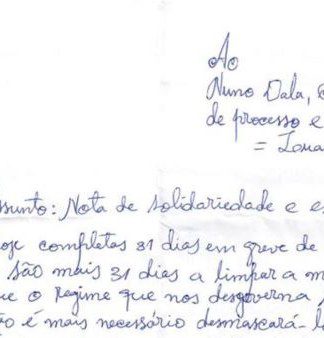 Ao
Nuno Dala,
de processo e
= Loua
ssunto: Nota de solidariedade e es
oje completas 31 dias em greve de
são mais 31 dias a limpar a m
ue o Regime que nos desgoverna
ão é mais necessário desmascará-l